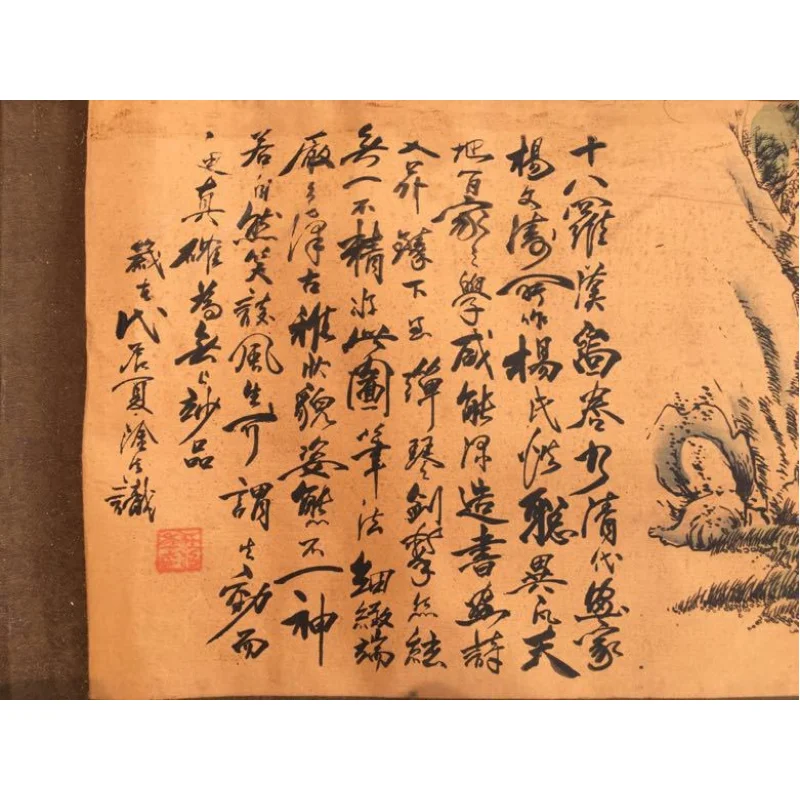 十八羅漢圖卷乃清代畫家
楊文濤所作楊氏聰異凡天
地百家之學咸能深造書畫詩
文昇鎳下至彈琴劍擊
無一不精此圖筆法細緻端
嚴古雅狀貌姿態不一神
若自然笑談風生可謂生動而
真確為無上妙品
歲在代居夏識